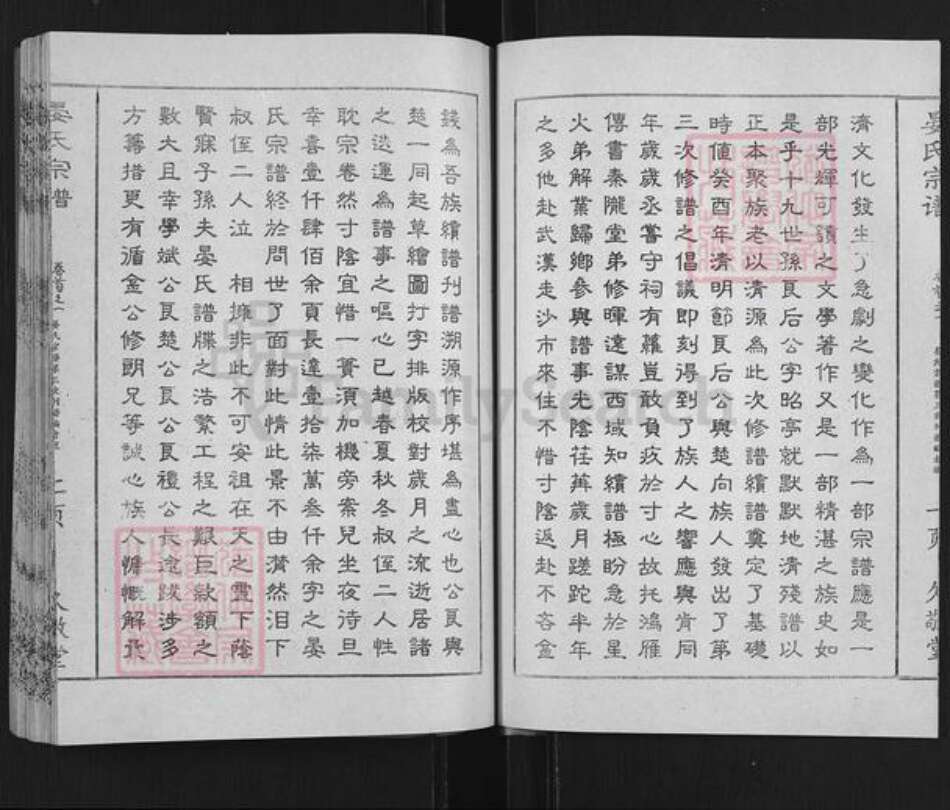 濟文化發生了急劇之變化作為一部宗譜應是一
部光輝可讀之文學著作又是一部精湛之族史如
是乎十九世孫良后公字昭亭就默默地清殘譜以
正本聚族老以清源為此次修譜續譜奠定了基礎
時值癸酉年清明節良后公與楚向族人發出了第
三次修譜之倡議即刻得到了族人之響應與肯同
年歲歲丞嘗守祠有蘿豈敢負疚於寸心故托鴻雁
傳書秦隴堂弟修暉遠謀西域知續譜極盼急於星
火弟解業歸鄉參與譜事光陰荏苒歲月蹉跎半年
之多他赴武漢走沙市來往不惜寸陰返赴不吝金
錢為吾族續譜刊譜溯源作序堪為盡心也公良與
楚一同起草繪圖打字排版校對歲月之流逝居諸
之迭運為譜事之嘔心已越春夏秋冬叔侄二人性
耽宗卷然寸陰宜惜一簣須加機旁案兒坐夜待旦
幸喜壹仟肆佰余頁長達壹拾柒萬叁仟余字之晏
氏宗譜終於問世了面對此情此景不由潸然泪下
叔侄二人泣 相擁非此不可安祖在天之靈下蔭
賢寐子孫夫晏氏譜牒之浩繁工程之艱巨款額之
數大且幸學斌公良楚公良公良禮公長途跋涉多
方籌措更有遁金公修朗兄等誠心族人慷慨解囊
晏氏宗譜
二頁
久敬堂
晏氏宗譜
一頁
久敬堂
FamilySearch